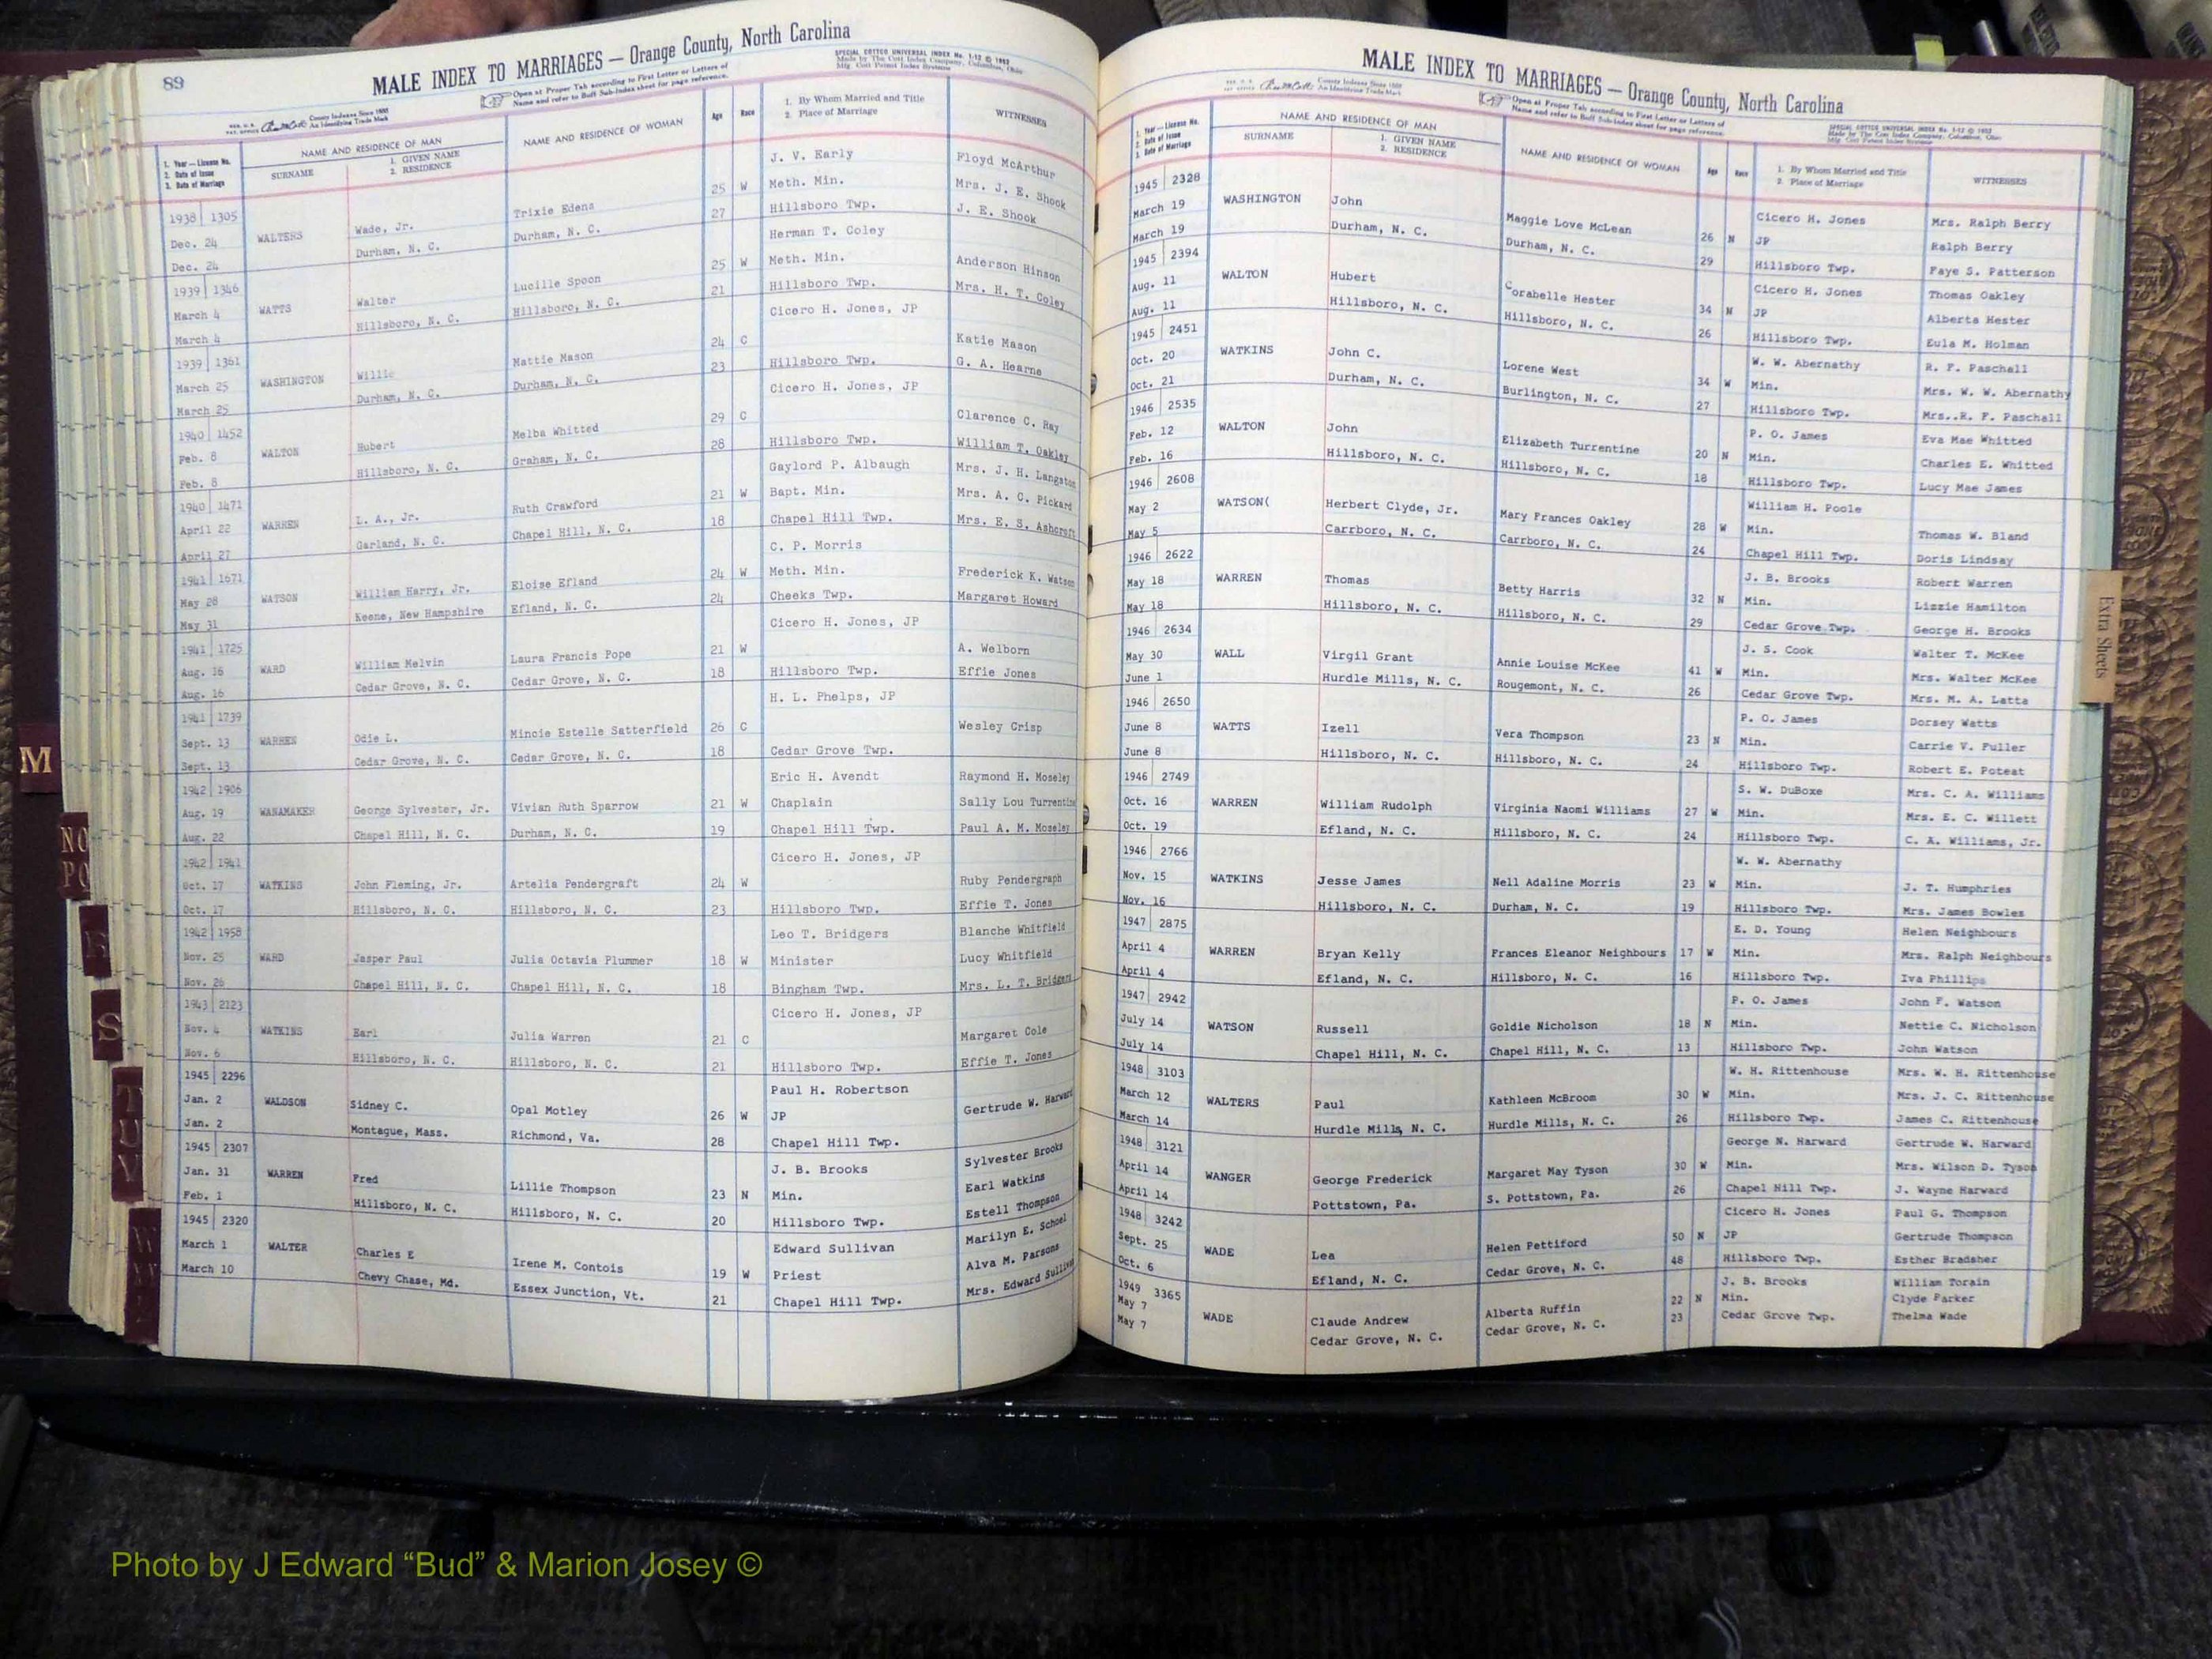 89
MALE INDEX TO MARRIAGES — Orange County, North Carolina
SPECIAL COTTCO UNIVERSAL INDEX No. 1-12 © 1952
Made by The Cott Index Company, Columbus, Ohio
Open at Proper Tab according to First Letter or Letters of
Name and refer to Buff Sub-Index sheet for page reference.
County Indexes Since 1888
An Identifying Trade Mark
NAME AND RESIDENCE OF MAN
1. Year — License No.
2. Date of Issue
3. Date of Marriage
SURNAME
1. GIVEN NAME
2. RESIDENCE
NAME AND RESIDENCE OF WOMAN
Age
Race
1. By Whom Married and Title
2. Place of Marriage
WITNESSES
J. V. Early Floyd McArthur
1938 1305 25 W Meth. Min. Mrs. J. E. Shook
Dec. 24 WALTERS Wade, Jr. Trixie Edens 27 Hillsboro Twp. J. E. Shook
Dec. 24 Durham, N. C. Durham, N. C.
Herman T. Coley
1939 1346 25 W Meth. Min. Anderson Hinson
March 4 WATTS Walter Lucille Spoon 21 Hillsboro Twp. Mrs. H. T. Coley
March 4 Hillsboro, N. C. Hillsboro, N. C.
Cicero H. Jones, JP
1939 1361 24 C Katie Mason
March 25 WASHINGTON Willie Mattie Mason 23 Hillsboro Twp. G. A. Hearne
March 25 Durham, N. C. Durham, N. C.
Cicero H. Jones, JP
1940 1452 29 C Clarence C. Ray
Feb. 8 WALTON Hubert Melba Whitted 28 Hillsboro Twp. William T. Oakley
Feb. 8 Hillsboro, N. C. Graham, N. C.
Gaylord P. Albaugh Mrs. J. H. Langston
1940 1471 21 W Bapt. Min. Mrs. A. C. Pickard
April 22 WARREN L. A., Jr. Ruth Crawford 18 Chapel Hill Twp. Mrs. E. S. Ashcraft
April 27 Garland, N. C. Chapel Hill, N. C.
C. P. Morris
1941 1671 24 W Meth. Min. Frederick K. Watson
May 28 WATSON William Harry, Jr. Eloise Efland 24 Cheeks Twp. Margaret Howard
May 31 Keene, New Hampshire Efland, N. C.
Cicero H. Jones, JP
1941 1725 21 W A. Welborn
Aug. 16 WARD William Melvin Laura Francis Pope 18 Hillsboro Twp. Effie Jones
Aug. 16 Cedar Grove, N. C. Cedar Grove, N. C.
H. L. Phelps, JP
1941 1739 26 C Wesley Crisp
Sept. 13 WARREN Odie L. Mincie Estelle Satterfield 18 Cedar Grove Twp.
Sept. 13 Cedar Grove, N. C. Cedar Grove, N. C.
1942 1906 Eric H. Avendt Raymond H. Moseley
Aug. 19 WANAMAKER George Sylvester, Jr. Vivian Ruth Sparrow 21 W Chaplain Sally Lou Turrentine
Aug. 22 Chapel Hill, N. C. Durham, N. C. 19 Chapel Hill Twp. Paul A. M. Moseley
1942 1941 Cicero H. Jones, JP
Oct. 17 WATKINS John Fleming, Jr. Artelia Pendergraft 24 W Ruby Pendergraph
Oct. 17 Hillsboro, N. C. Hillsboro, N. C. 23 Hillsboro Twp. Effie T. Jones
1942 1958 Leo T. Bridgers Blanche Whitfield
Nov. 25 WARD Jasper Paul Julia Octavia Plummer 18 W Minister Lucy Whitfield
Nov. 26 Chapel Hill, N. C. Chapel Hill, N. C. 18 Bingham Twp. Mrs. L. T. Bridgers
1943 2123 Cicero H. Jones, JP
Nov. 4 WATKINS Earl Julia Warren 21 C Margaret Cole
Nov. 6 Hillsboro, N. C. Hillsboro, N. C. 21 Hillsboro Twp. Effie T. Jones
1945 2296 Paul H. Robertson
Jan. 2 WALDSON Sidney C. Opal Motley 26 W JP Gertrude W. Harward
Jan. 2 Montague, Mass. Richmond, Va. 28 Chapel Hill Twp.
1945 2307 J. B. Brooks Sylvester Brooks
Jan. 31 WARREN Fred Lillie Thompson 23 N Min. Earl Watkins
Feb. 1 Hillsboro, N. C. Hillsboro, N. C. 20 Hillsboro Twp. Estell Thompson
1945 2320 Edward Sullivan Marilyn E. Schoel
March 1 WALTER Charles E Irene M. Contois 19 W Priest Alva M. Parsons
March 10 Chevy Chase, Md. Essex Junction, Vt. 21 Chapel Hill Twp. Mrs. Edward Sullivan
MALE INDEX TO MARRIAGES — Orange County, North Carolina
County Indexes Since 1888
An Identifying Trade Mark
Open at Proper Tab according to First Letter or Letters of
Name and refer to Buff Sub-Index sheet for page reference.
SPECIAL COTTCO UNIVERSAL INDEX No. 1-12 © 1952
Made by The Cott Index Company, Columbus, Ohio
1. Year — License No.
2. Date of Issue
3. Date of Marriage
NAME AND RESIDENCE OF MAN
SURNAME
1. GIVEN NAME
2. RESIDENCE
NAME AND RESIDENCE OF WOMAN
Age
Race
1. By Whom Married and Title
2. Place of Marriage
WITNESSES
1945 2328 Cicero H. Jones Mrs. Ralph Berry
March 19 WASHINGTON John Maggie Love McLean 26 N JP Ralph Berry
March 19 Durham, N. C. Durham, N. C. 29 Hillsboro Twp. Faye S. Patterson
1945 2394 Cicero H. Jones Thomas Oakley
Aug. 11 WALTON Hubert Corabelle Hester 34 N JP Alberta Hester
Aug. 11 Hillsboro, N. C. Hillsboro, N. C. 26 Hillsboro Twp. Eula M. Holman
1945 2451 W. W. Abernathy R. F. Paschall
Oct. 20 WATKINS John C. Lorene West 34 W Min. Mrs. W. W. Abernathy
Oct. 21 Durham, N. C. Burlington, N. C. 27 Hillsboro Twp. Mrs..R. F. Paschall
1946 2535 P. O. James Eva Mae Whitted
Feb. 12 WALTON John Elizabeth Turrentine 20 N Min. Charles E. Whitted
Feb. 16 Hillsboro, N. C. Hillsboro, N. C. 18 Hillsboro Twp. Lucy Mae James
1946 2608 William H. Poole
May 2 WATSON( Herbert Clyde, Jr. Mary Frances Oakley 28 W Min. Thomas W. Bland
May 5 Carrboro, N. C. Carrboro, N. C. 24 Chapel Hill Twp. Doris Lindsay
1946 2622 J. B. Brooks Robert Warren
May 18 WARREN Thomas Betty Harris 32 N Min. Lizzie Hamilton
May 18 Hillsboro, N. C. Hillsboro, N. C. 29 Cedar Grove Twp. George H. Brooks
1946 2634 J. S. Cook Walter T. McKee
May 30 WALL Virgil Grant Annie Louise McKee 41 W Min. Mrs. Walter McKee
June 1 Hurdle Mills, N. C. Rougemont, N. C. 26 Cedar Grove Twp. Mrs. M. A. Latta
1946 2650 P. O. James Dorsey Watts
June 8 WATTS Izell Vera Thompson 23 N Min. Carrie V. Fuller
June 8 Hillsboro, N. C. Hillsboro, N. C. 24 Hillsboro Twp. Robert E. Poteat
1946 2749 S. W. DuBoxe Mrs. C. A. Williams
Oct. 16 WARREN William Rudolph Virginia Naomi Williams 27 W Min. Mrs. E. C. Willett
Oct. 19 Efland, N. C. Hillsboro, N. C. 24 Hillsboro Twp. C. A. Williams, Jr.
1946 2766 W. W. Abernathy
Nov. 15 WATKINS Jesse James Nell Adaline Morris 23 W Min. J. T. Humphries
Nov. 16 Hillsboro, N. C. Durham, N. C. 19 Hillsboro Twp. Mrs. James Bowles
1947 2875 E. D. Young Helen Neighbours
April 4 WARREN Bryan Kelly Frances Eleanor Neighbours 17 W Min. Mrs. Ralph Neighbours
April 4 Efland, N. C. Hillsboro, N. C. 16 Hillsboro Twp. Iva Phillips
1947 2942 P. O. James John F. Watson
July 14 WATSON Russell Goldie Nicholson 18 N Min. Nettie C. Nicholson
July 14 Chapel Hill, N. C. Chapel Hill, N. C. 13 Hillsboro Twp. John Watson
1948 3103 W. H. Rittenhouse Mrs. W. H. Rittenhouse
March 12 WALTERS Paul Kathleen McBroom 30 W Min. Mrs. J. C. Rittenhouse
March 14 Hurdle Mills, N. C. Hurdle Mills, N. C. 26 Hillsboro Twp. James C. Rittenhouse
1948 3121 George N. Harward Gertrude W. Harward
April 14 WANGER George Frederick Margaret May Tyson 30 W Min. Mrs. Wilson D. Tyson
April 14 Pottstown, Pa. S. Pottstown, Pa. 26 Chapel Hill Twp. J. Wayne Harward
1948 3242 Cicero H. Jones Paul G. Thompson
Sept. 25 WADE Lea Helen Pettiford 50 N JP Gertrude Thompson
Oct. 6 Efland, N. C. Cedar Grove, N. C. 48 Hillsboro Twp. Esther Bradsher
1949 3365 J. B. Brooks William Torain
May 7 WADE Claude Andrew Alberta Ruffin 22 N Min. Clyde Parker
May 7 Cedar Grove, N. C. Cedar Grove, N. C. 23 Cedar Grove Twp. Thelma Wade
Extra Sheets
M
NO
PQ
R
S
T
U
V
W
Photo by J Edward “Bud” & Marion Josey ©